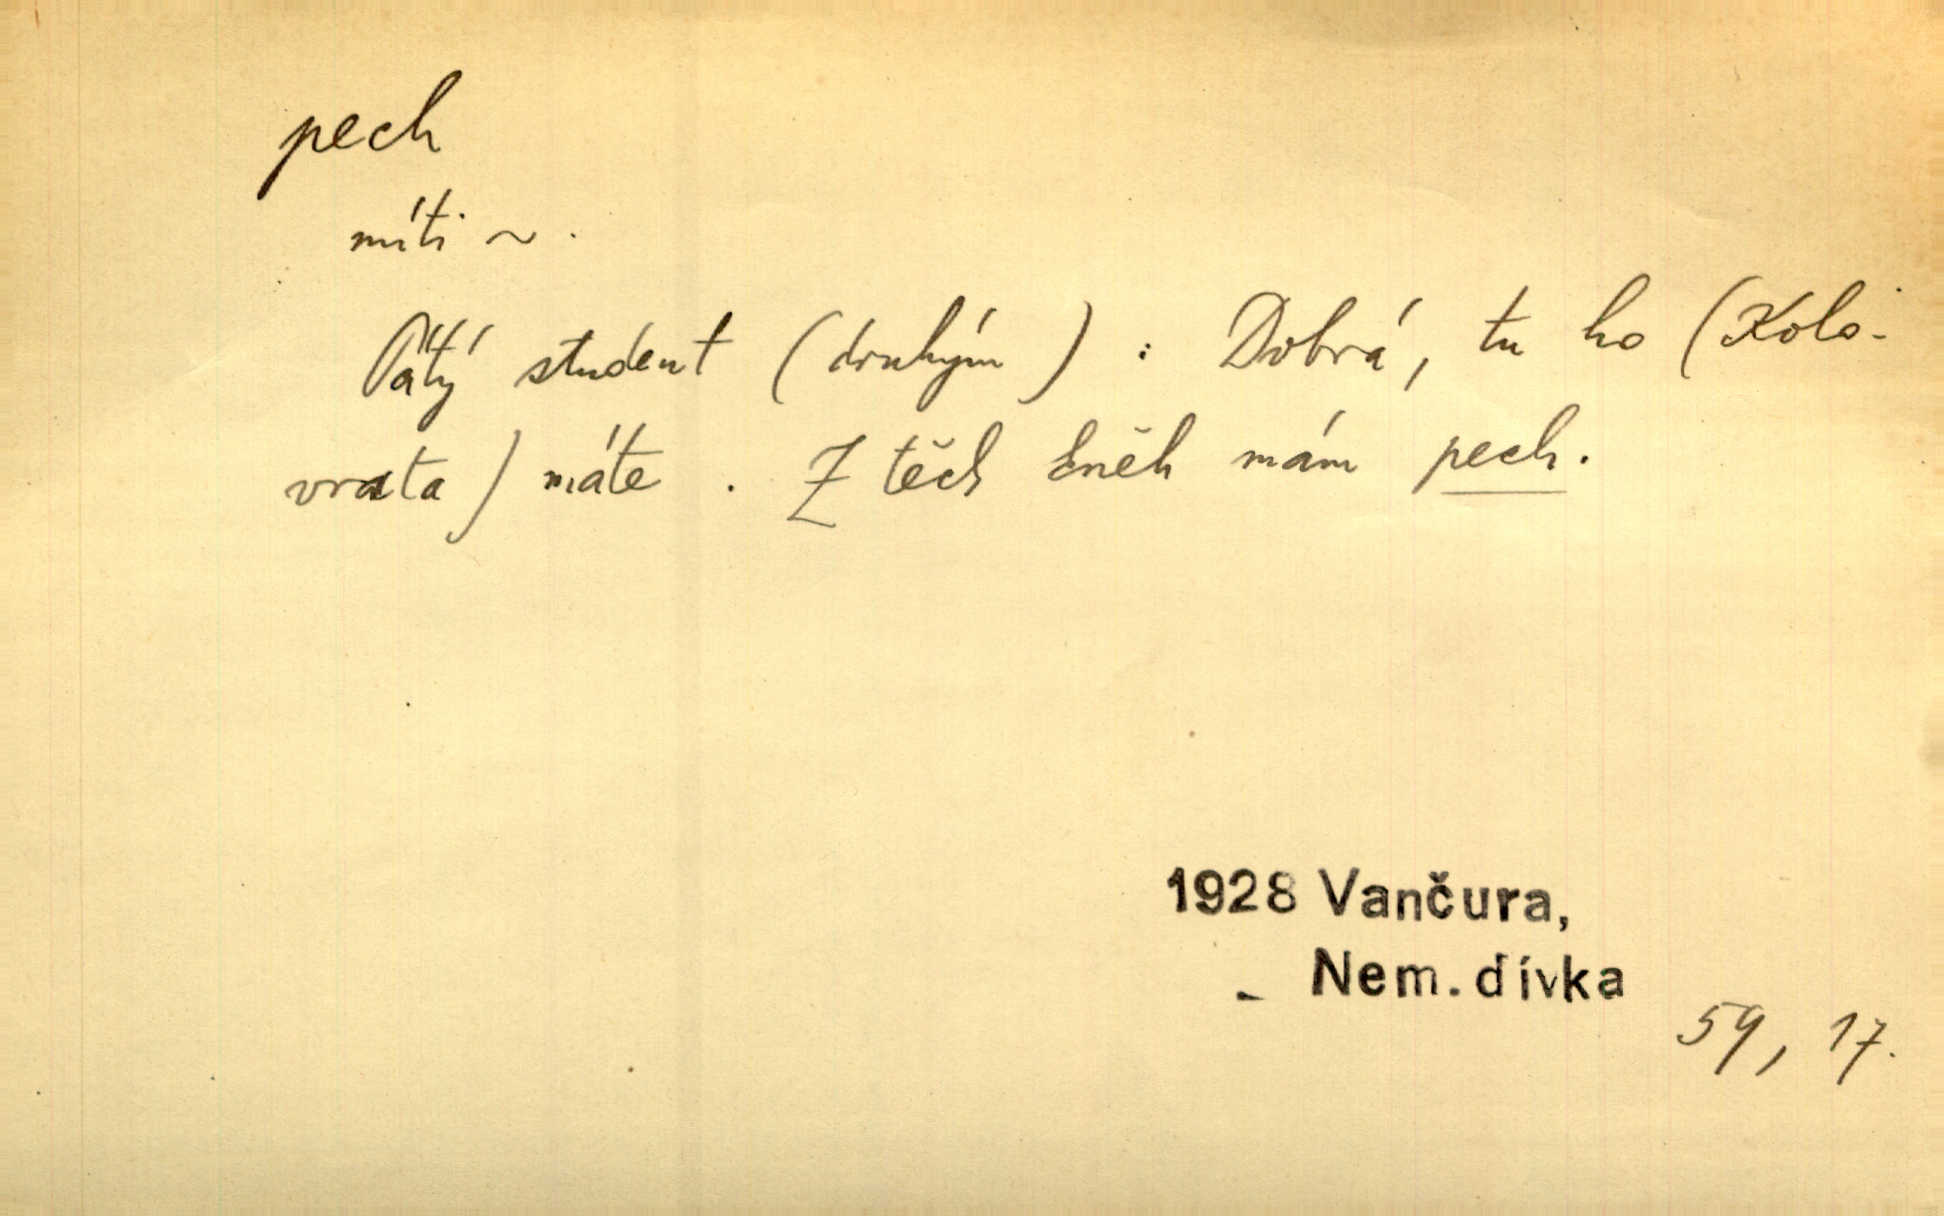 pech
míti ~.
Pátý student (druhým): Dobrá, tu ho (Kolo-
vrata) máte. Z těch kněh mám pech.
1928 Vančura,
Nem. dívka
59, 17.